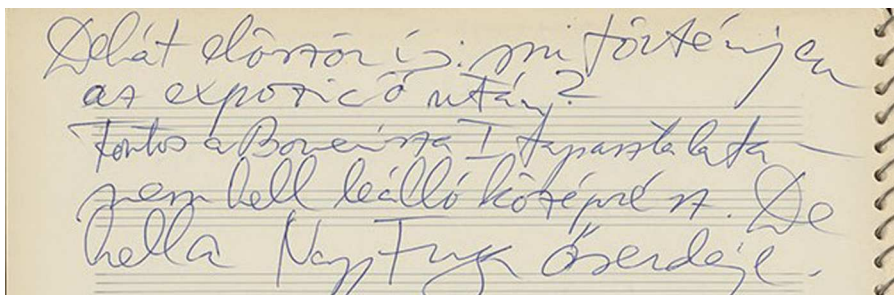 Dehát először is: mi történjen
az expozició után?
Fontos a Bornemisza I tapasztalata –
nem kell leálló középrész. De
kell a Nagy Fuga őserdeje.